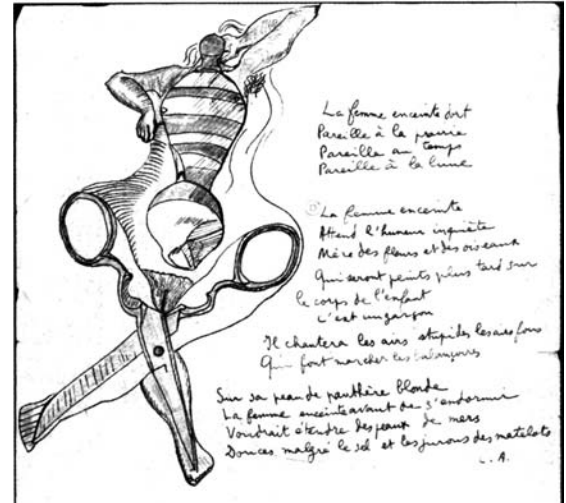 La femme enceinte dort
Pareille à la prairie
Pareille au temps
Pareille à la lune
La femme enceinte
Attend l'humeur inquiète
Mère des fleurs et des oiseaux
Qui seront peints plus tard sur
le corps de l'enfant
C'est un garçon
Il chantera les airs stupides les airs fous
Qui font marcher les balançoires
Sur sa peau de panthère blonde
La femme enceinte avant de s'endormir
Voudrait étendre des peaux de mers
Douces, malgré le sel et les jurons des matelots
L. A.